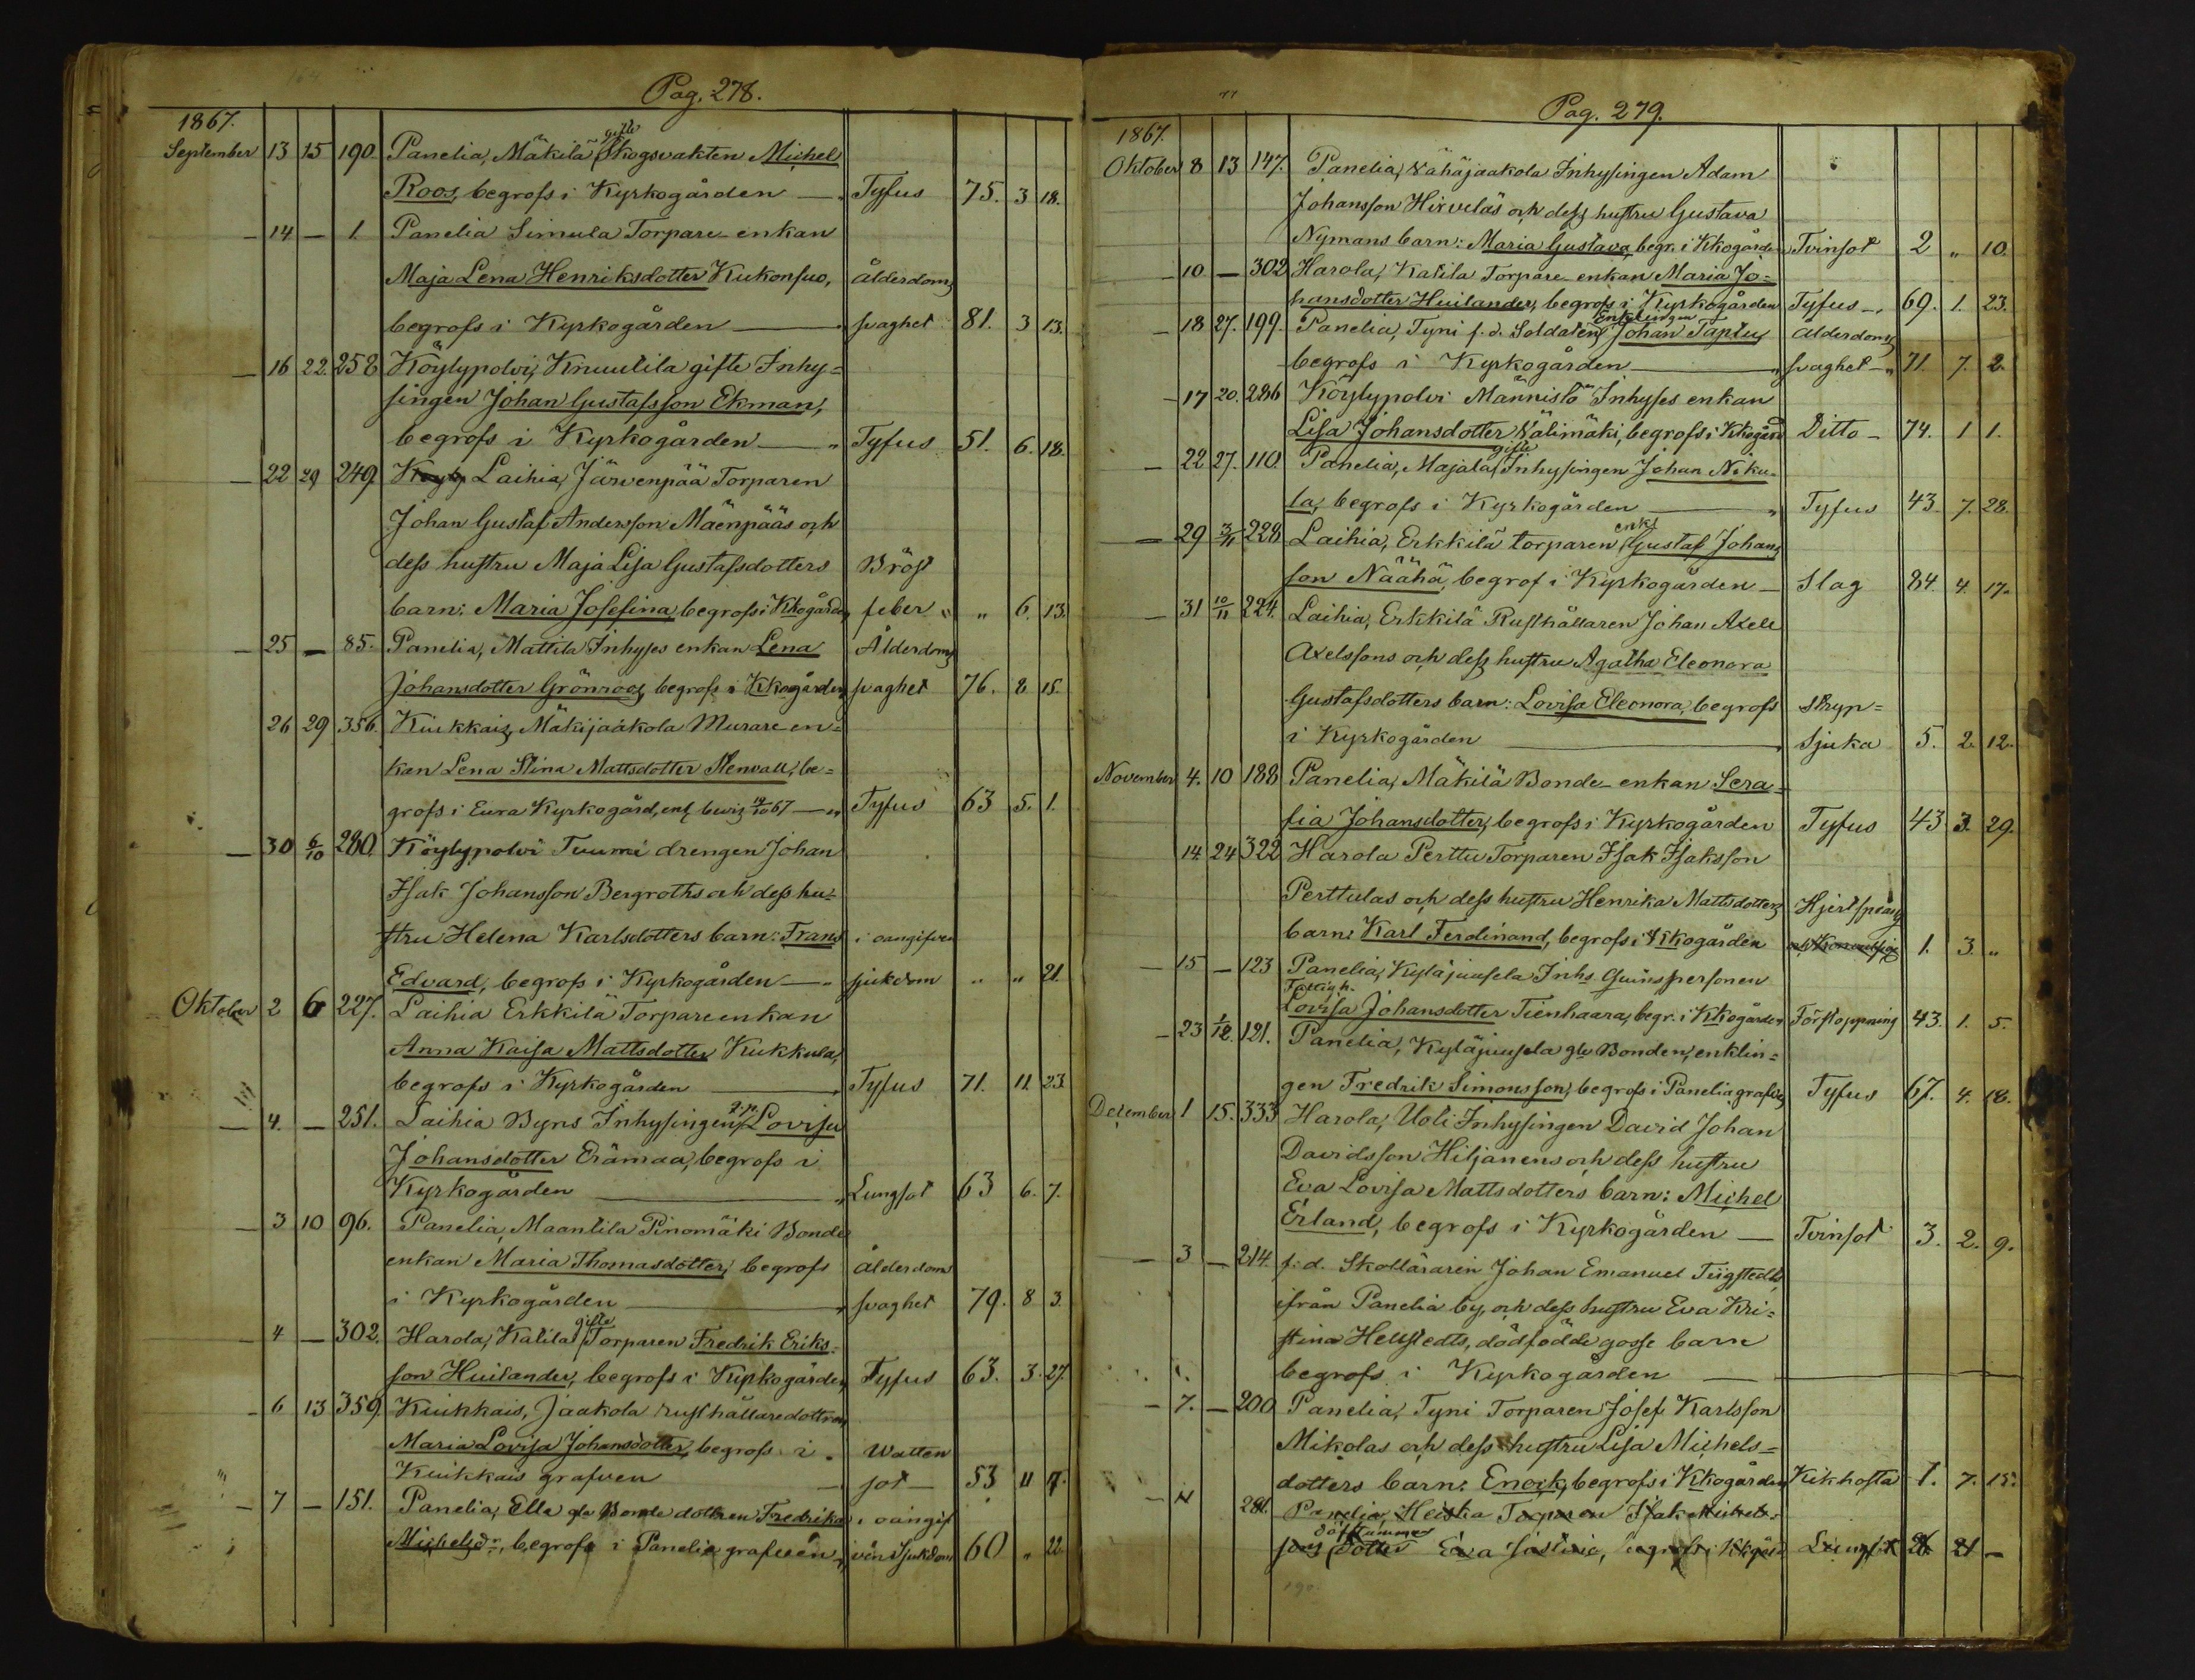 Pag. 278.
1867.
September 13 15 190. Panelia, Mäkilä gifte Skogsvakten Michel
Roos, begrofs i Kyrkogården —„ Tyfus 75. 3 18.
— 14 — 1. Panelia Simula Torpare-enkan
Maja Lena Henriksdotter Kukonsuo, ålderdoms
begrofs i Kyrkogården — svaghet 81. 3 13.
— 16 22. 258 Köylypolvi, Knuutila gifte Inhy=
singen Johan Gustafsson Ekman,
begrofs i Kyrkogården —„ Tyfus 51. 6. 18.
— 22 29 249 Laihia, Järvenpää Torparen
Johan Gustaf Andersson Mäenpääs och
dess hustru Maja Lisa Gustafsdotters Bröst
barn: Maria Josefina, begrofs i Kkogården feber „ „ 6. 13.
— 25 — 85. Panelia, Mattila Inhyses enkan Lena Ålderdoms
Johansdotter Grönroos, begrofs i Kkogården svaghet 76. 8 15.
26 29 356. Kiukkais, Mäkijaakola Murare en=
kan Lena Stina Mattsdotter Stenvall, be=
grofs i Eura Kyrkogård, enl. bevis 19/10 67 —„ Tyfus 63 5. 1.
— 30 6/10 280. Köylypolvi Tuumi drengen Johan
Isak Johansson Bergroths och dess hu=
stru Helena Karlsdotters barn: Frans i oangifven
Edvard, begrofs i Kyrkogården —„ sjukdom „ „ 21.
Oktober 2 6 227. Laihia Erkkilä Torpareenkan
Anna Kaisa Mattsdotter Kukkula,
begrofs i Kyrkogården — Tyfus 71. 11. 23.
— 4. — 251. Laihia Byns Inhysingen Lovisa
Johansdotter Erämaa, begrofs i
Kyrkogården —„ Lungsot 63 6. 7.
— 3 10 96. Panelia, Maantila Pinomäki Bonde
enkan Maria Thomasdotter, begrofs ålderdoms
i Kyrkogården — svaghet 79. 8 3.
— 4 — 302. Harola, Katila gifte Torparen Fredrik Eriks=
son Huilander, begrofs i Kyrkogården Tyfus 63. 3. 27.
— 6 13 359. Kiukkais, Jaakola rusthållaredottren
Maria Lovisa Johansdotter, begrofs i Watten
Kiukkais grafven — sot — 53 11 7.
— 7 — 151. Panelia, Ella gla Bonde dottren Fredrika i oangif
Michelsdr, begrofs i Panelia grafven ven Sjukdom 60 „ 22.
Pag. 279.
1867.
Oktober 8 13 147. Panelia, Vähäjaakola Inhysingen Adam
Johansson Hirveläs och dess hustru Gustava
Nymans barn: Maria Gustava, begr. i Kkogården Tvinsot 2 „ 10.
— 10 — 302 Harola, Katila Torpare enkan Maria Jo=
hansdotter Huilander, begrofs i Kyrkogården Tyfus —„ 69. 1. 23.
— 18 27. 199. Panelia, Tyni f.d. Soldaten Enklingen Johan Taplu, ålderdoms
begrofs i Kyrkogården —„ svaghet —„ 71. 7. 2.
— 17 20. 286 Köylypolvi Männistö Inhyses enkan
Lisa Johansdotter Välimäki, begrofs i Kkogård Ditto — 74. 1 1.
— 22 27. 110. Panelia, Majala gifte Inhysingen Johan Niku=
la, begrofs i Kyrkogården —„ Tyfus 43. 7. 28.
— 29 3/11 228 Laihia, Erkkilä torparen enkl Gustaf Johans
son Näähä, begrof i Kyrkogården — Slag 84. 4. 17.
— 31 10/11 224. Laihia, Erkkilä Rusthållaren Johan Axell
Axelssons och dess hustru Agatha Eleonora
Gustafsdotters barn: Lovisa Eleonora, begrofs Stryp=
i Kyrkogården — Sjuka 5. 2. 12.
November 4. 10 188 Panelia, Mäkilä Bonde-enkan Sera=
fia Johansdotter, begrofs i Kyrkogården Tyfus 43 3. 29.
14. 24 322 Harola Perttu Torparen Isak Isaksson
Perttulas och dess hustru Henrika Mattsdotters Hjertsprång
barn: Karl Ferdinand, begrofs i Kkogården 1. 3. „
— 15 — 123 Panelia, Kyläjuusela Inhs Qvinspersonen
Fattigh.
Lovisa Johansdotter Tienhaara, begr. i Kkogården Förstoppning 43. 1. 5.
— 23 1/12. 121. Panelia, Kyläjuusela gle Bonden, enklin=
gen Fredrik Simonsson, begrofs i Panelia grafven Tyfus 67. 4. 18.
December 1 15. 333 Harola, Uoli Inhysingen David Johan
Davidsson Hiljanens och dess hustru
Eva Lovisa Mattsdotters barn: Michel
Erland, begrofs i Kyrkogården — Tvinsot 3. 2. 9.
— 3 — 214. f.d. Skolläraren Johan Emanuel Tiigstedts
ifrån Panelia by, och dess hustru Eva Kri=
stina Hellstedts, dödfödde gosse barn
begrofs i Kyrkogården —
— 7. — 200 Panelia, Tyni Torparen Josef Karlsson
Mikolas och dess hustru Lisa Michels=
dotters barn: Enock, begrofs i Kkogården Kikhosta 1. 7. 15.
281. Panelia, Heiska Torparen Isak Michels=
sons dotter Eva begrofs i Kkgård Lungsot 21 —
190